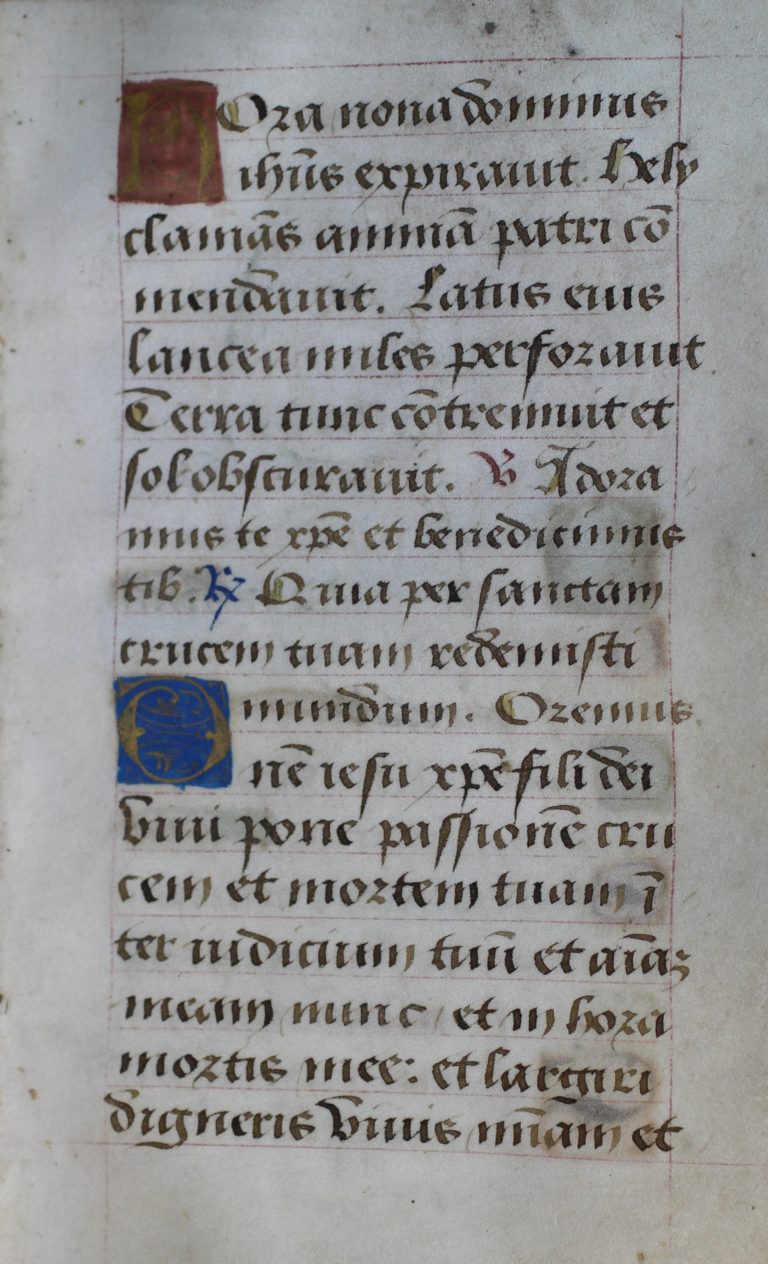 HOra nona dominus
ihūs expirauit. Hely
clamās animā patri cō
mendauit. Latus eius
lancea miles perforauit
Terra tunc cōtremuit et
sol obscurauit. ℣ Adora
mus te xp̄e et benedicimus
tib. ℟ Quia per sanctam
crucem tuam redemisti
mundum. Oremus.
Dn̄e iesu xp̄e fili dei
viui pone passionē cru
cem et mortem tuam ī
ter iudicium tuū et aīaʒ
meam nunc et in hora
mortis mee: et largiri
digneris viuis mīam et